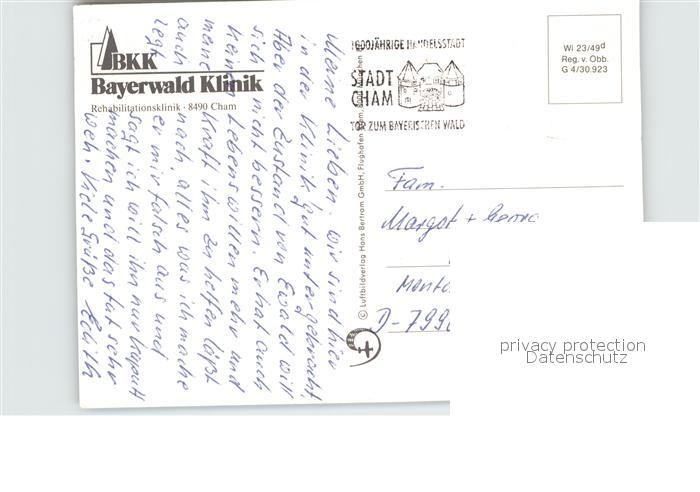 BKK
Bayerwald Klinik
Rehabilitationsklinik · 8490 Cham
Meine Lieben. Wir sind hier
in der Klinik gut untergebracht.
Aber der Zustand von Ewald will
sich nicht bessern. Er hat auch
keinen Lebenswillen mehr und
meine Kraft ihm zu helfen läßt
auch nach, alles was ich mache
legt er mir falsch aus und
sagt ich will ihn nur kaputt
machen und das tut sehr
weh. Viele Grüße Edith
© Luftbildverlag Hans Bertram GmbH, Flughafen
1000JÄHRIGE HANDELSSTADT
STADT
CHAM
TOR ZUM BAYERISCHEN WALD
Wi 23/49d
Reg. v. Obb.
G 4/30.923
Fam.
Margot +
D-799
privacy protection
Datenschutz